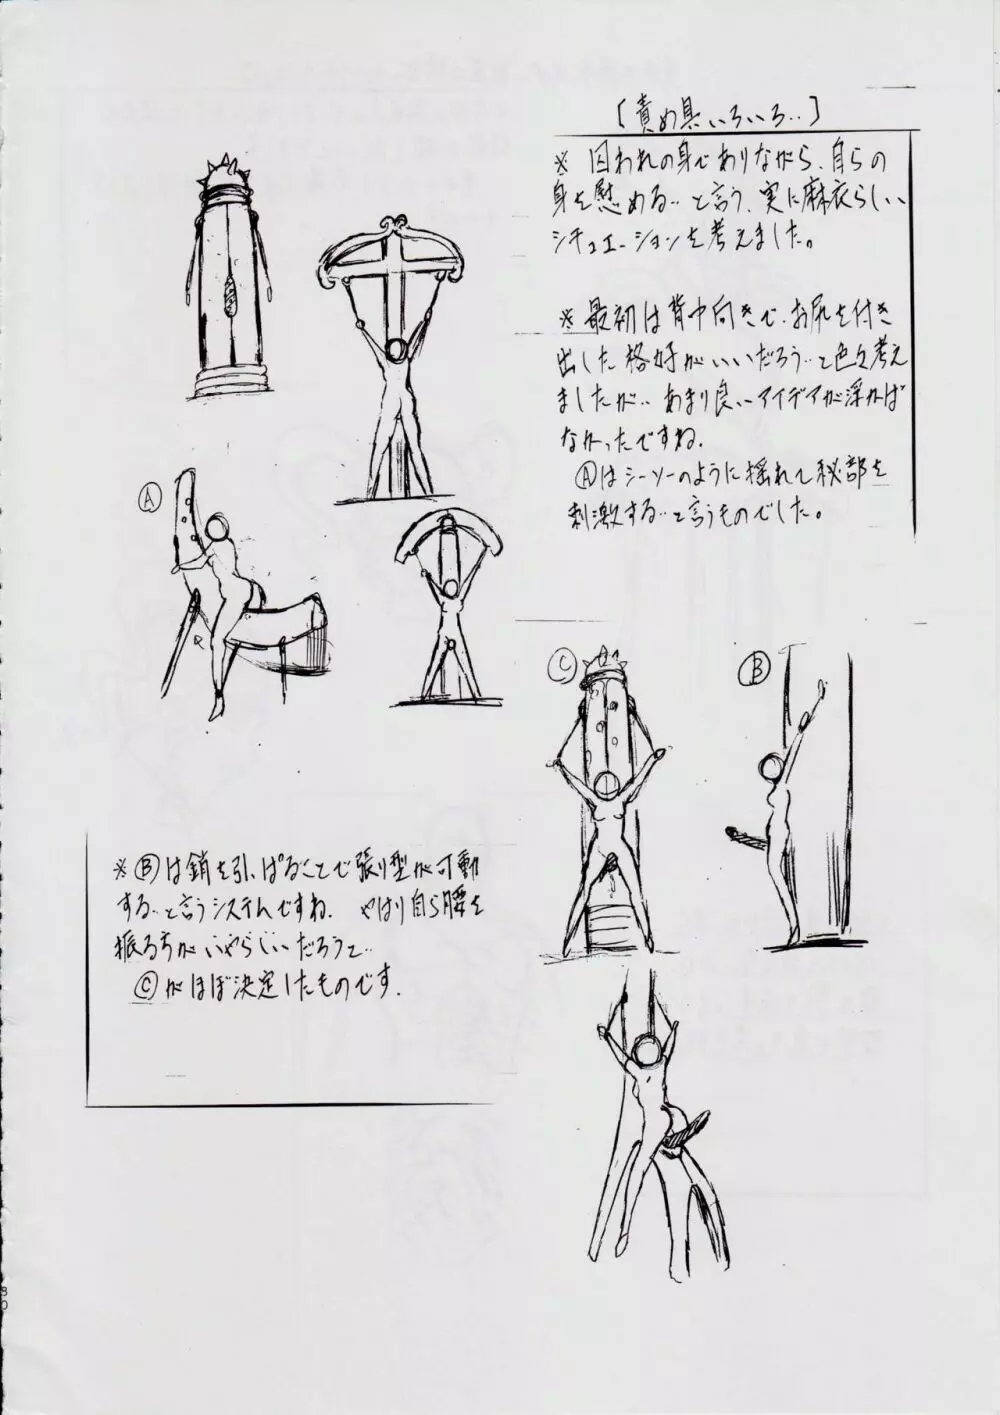 [責め具いろいろ..]
※ 囚われの身でありながら、自らの
身を慰める.. と言う、実に麻衣らしい
シチュエーションを考えました。
※ 最初は背中向きで、お尻を付き
出した格好がいいだろう.. と色々考え
ましたが.. あまり良いアイデアが浮かば
なかったですね.
Ⓐはシーソーのように揺れて秘部を
刺激する.. と言うものでした。
Ⓐ
Ⓒ
Ⓑ
※ Ⓑは鎖を引っぱることで張り型が可動
する.. と言うシステムですね. やはり自ら腰を
振る方がいやらしいだろうと..
Ⓒがほぼ決定したものです.
30